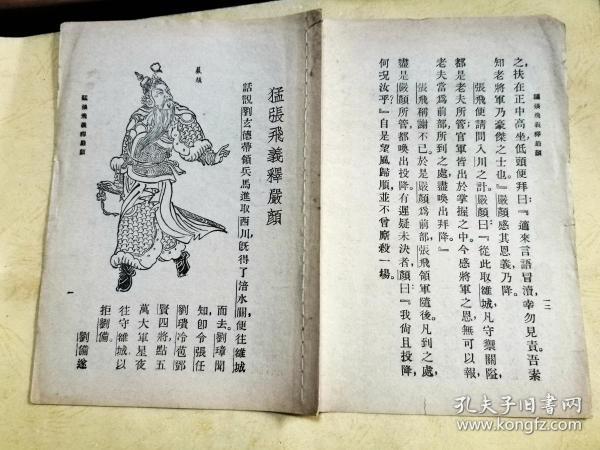 猛張飛義釋嚴顏
一二
之,扶在正中高坐,低頭便拜曰:『適來言語冒瀆,幸勿見責。吾素
知老將軍乃豪傑之士也。』嚴顏感其恩義,乃降。
張飛便請問入川之計。嚴顏曰:『從此取雒城,凡守禦關隘,
都是老夫所管,官軍皆出於掌握之中。今感將軍之恩,無可以報,
老夫當爲前部,所到之處,盡喚出拜降。』
張飛稱謝不已。於是嚴顏爲前部,張飛領軍隨後。凡到之處,
盡是嚴顏所管,都喚出投降。有遲疑未決者,顏曰:『我尙且投降,
何況汝乎?』自是望風歸順,並不曾廝殺一場。
猛張飛義釋嚴顏
話說劉玄德帶領兵馬進取西川,旣得了涪水關,便往雒城
而去。劉璋聞
知,卽令張任
劉璝冷苞鄧
賢四將,點五
萬大軍,星夜
往守雒城,以
拒劉備。
劉備遂
嚴顏
猛張飛義釋嚴顏
一
孔夫子旧书网
www.kongfz.com